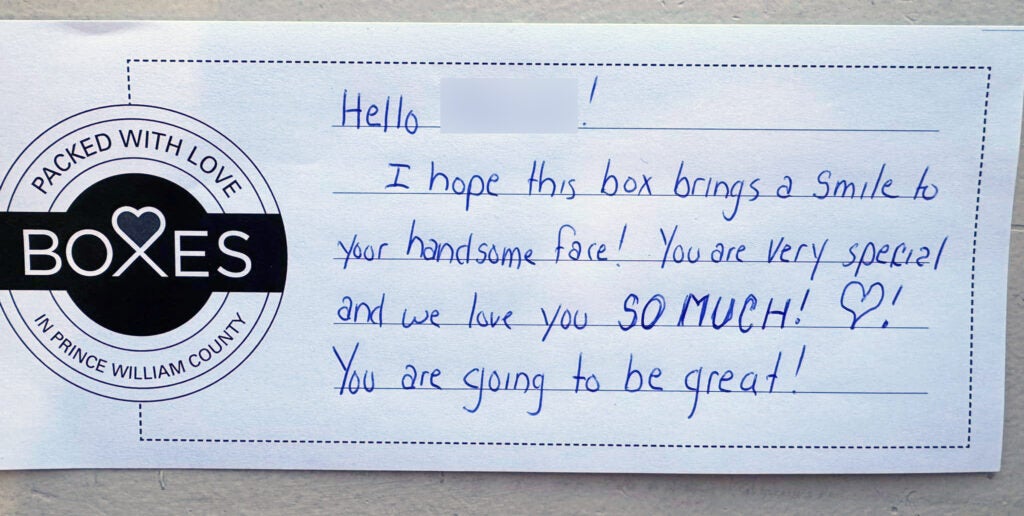 PACKED WITH LOVE
BOXES
IN PRINCE WILLIAM COUNTY
Hello !
I hope this box brings a smile to
your handsome face! You are very special
and we love you SO MUCH! ♡!
You are going to be great!